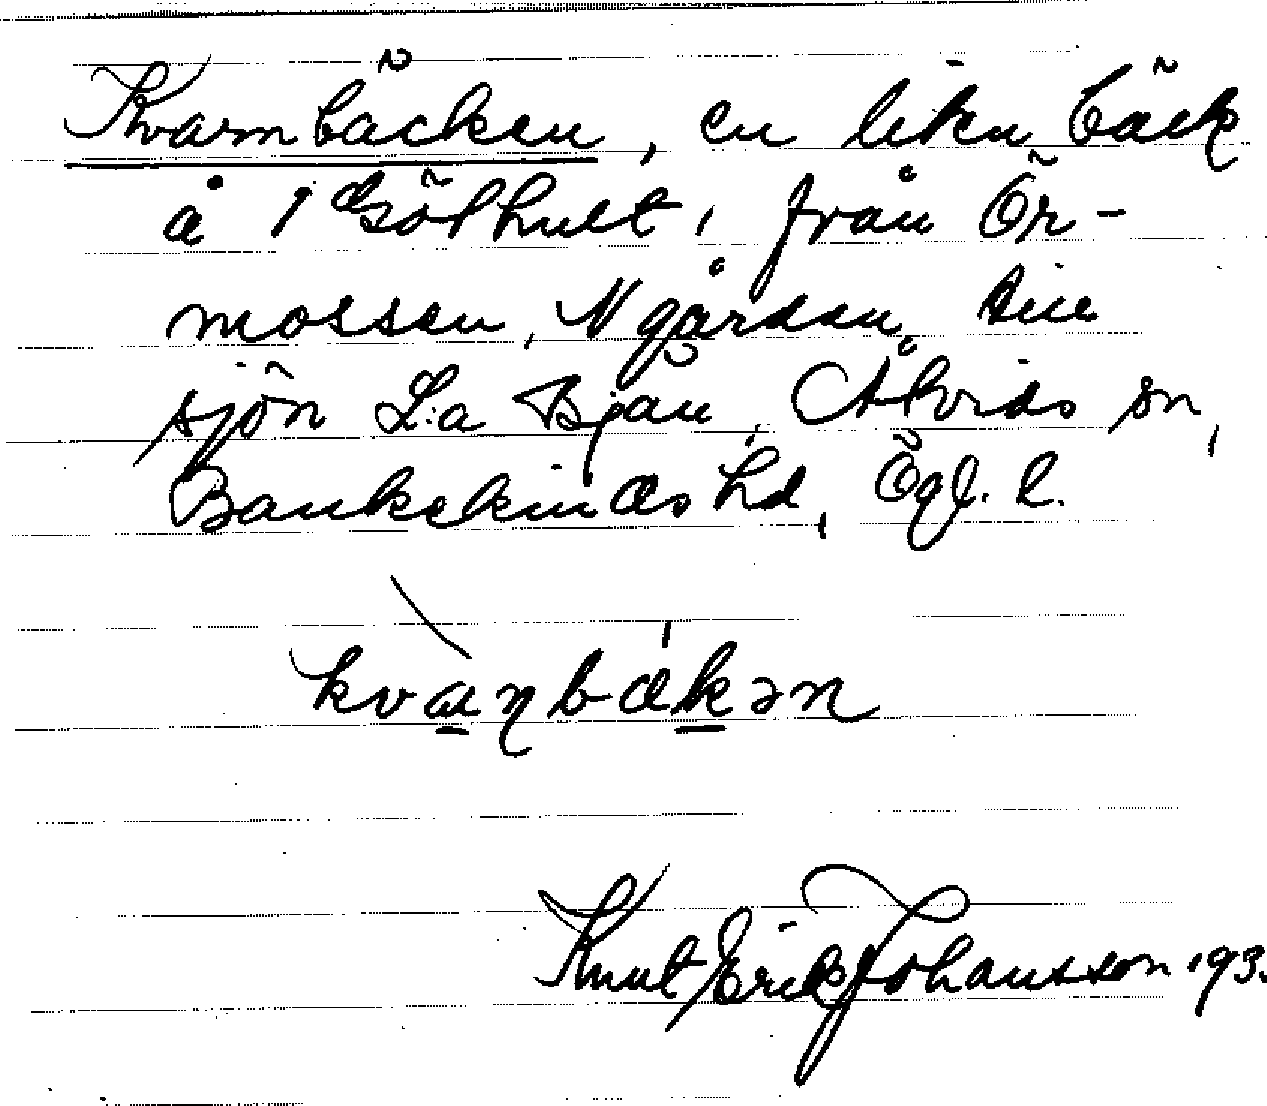 Kvarnbäcken, en liten bäck
å 1 Gölhult, från Ör-
mossen, N gården, till
sjön L:a Bjän, Åtvids sn,
Bankekinds hd, Ögl. l.
kvaɳbækən
Knut Erik Johansson 193.